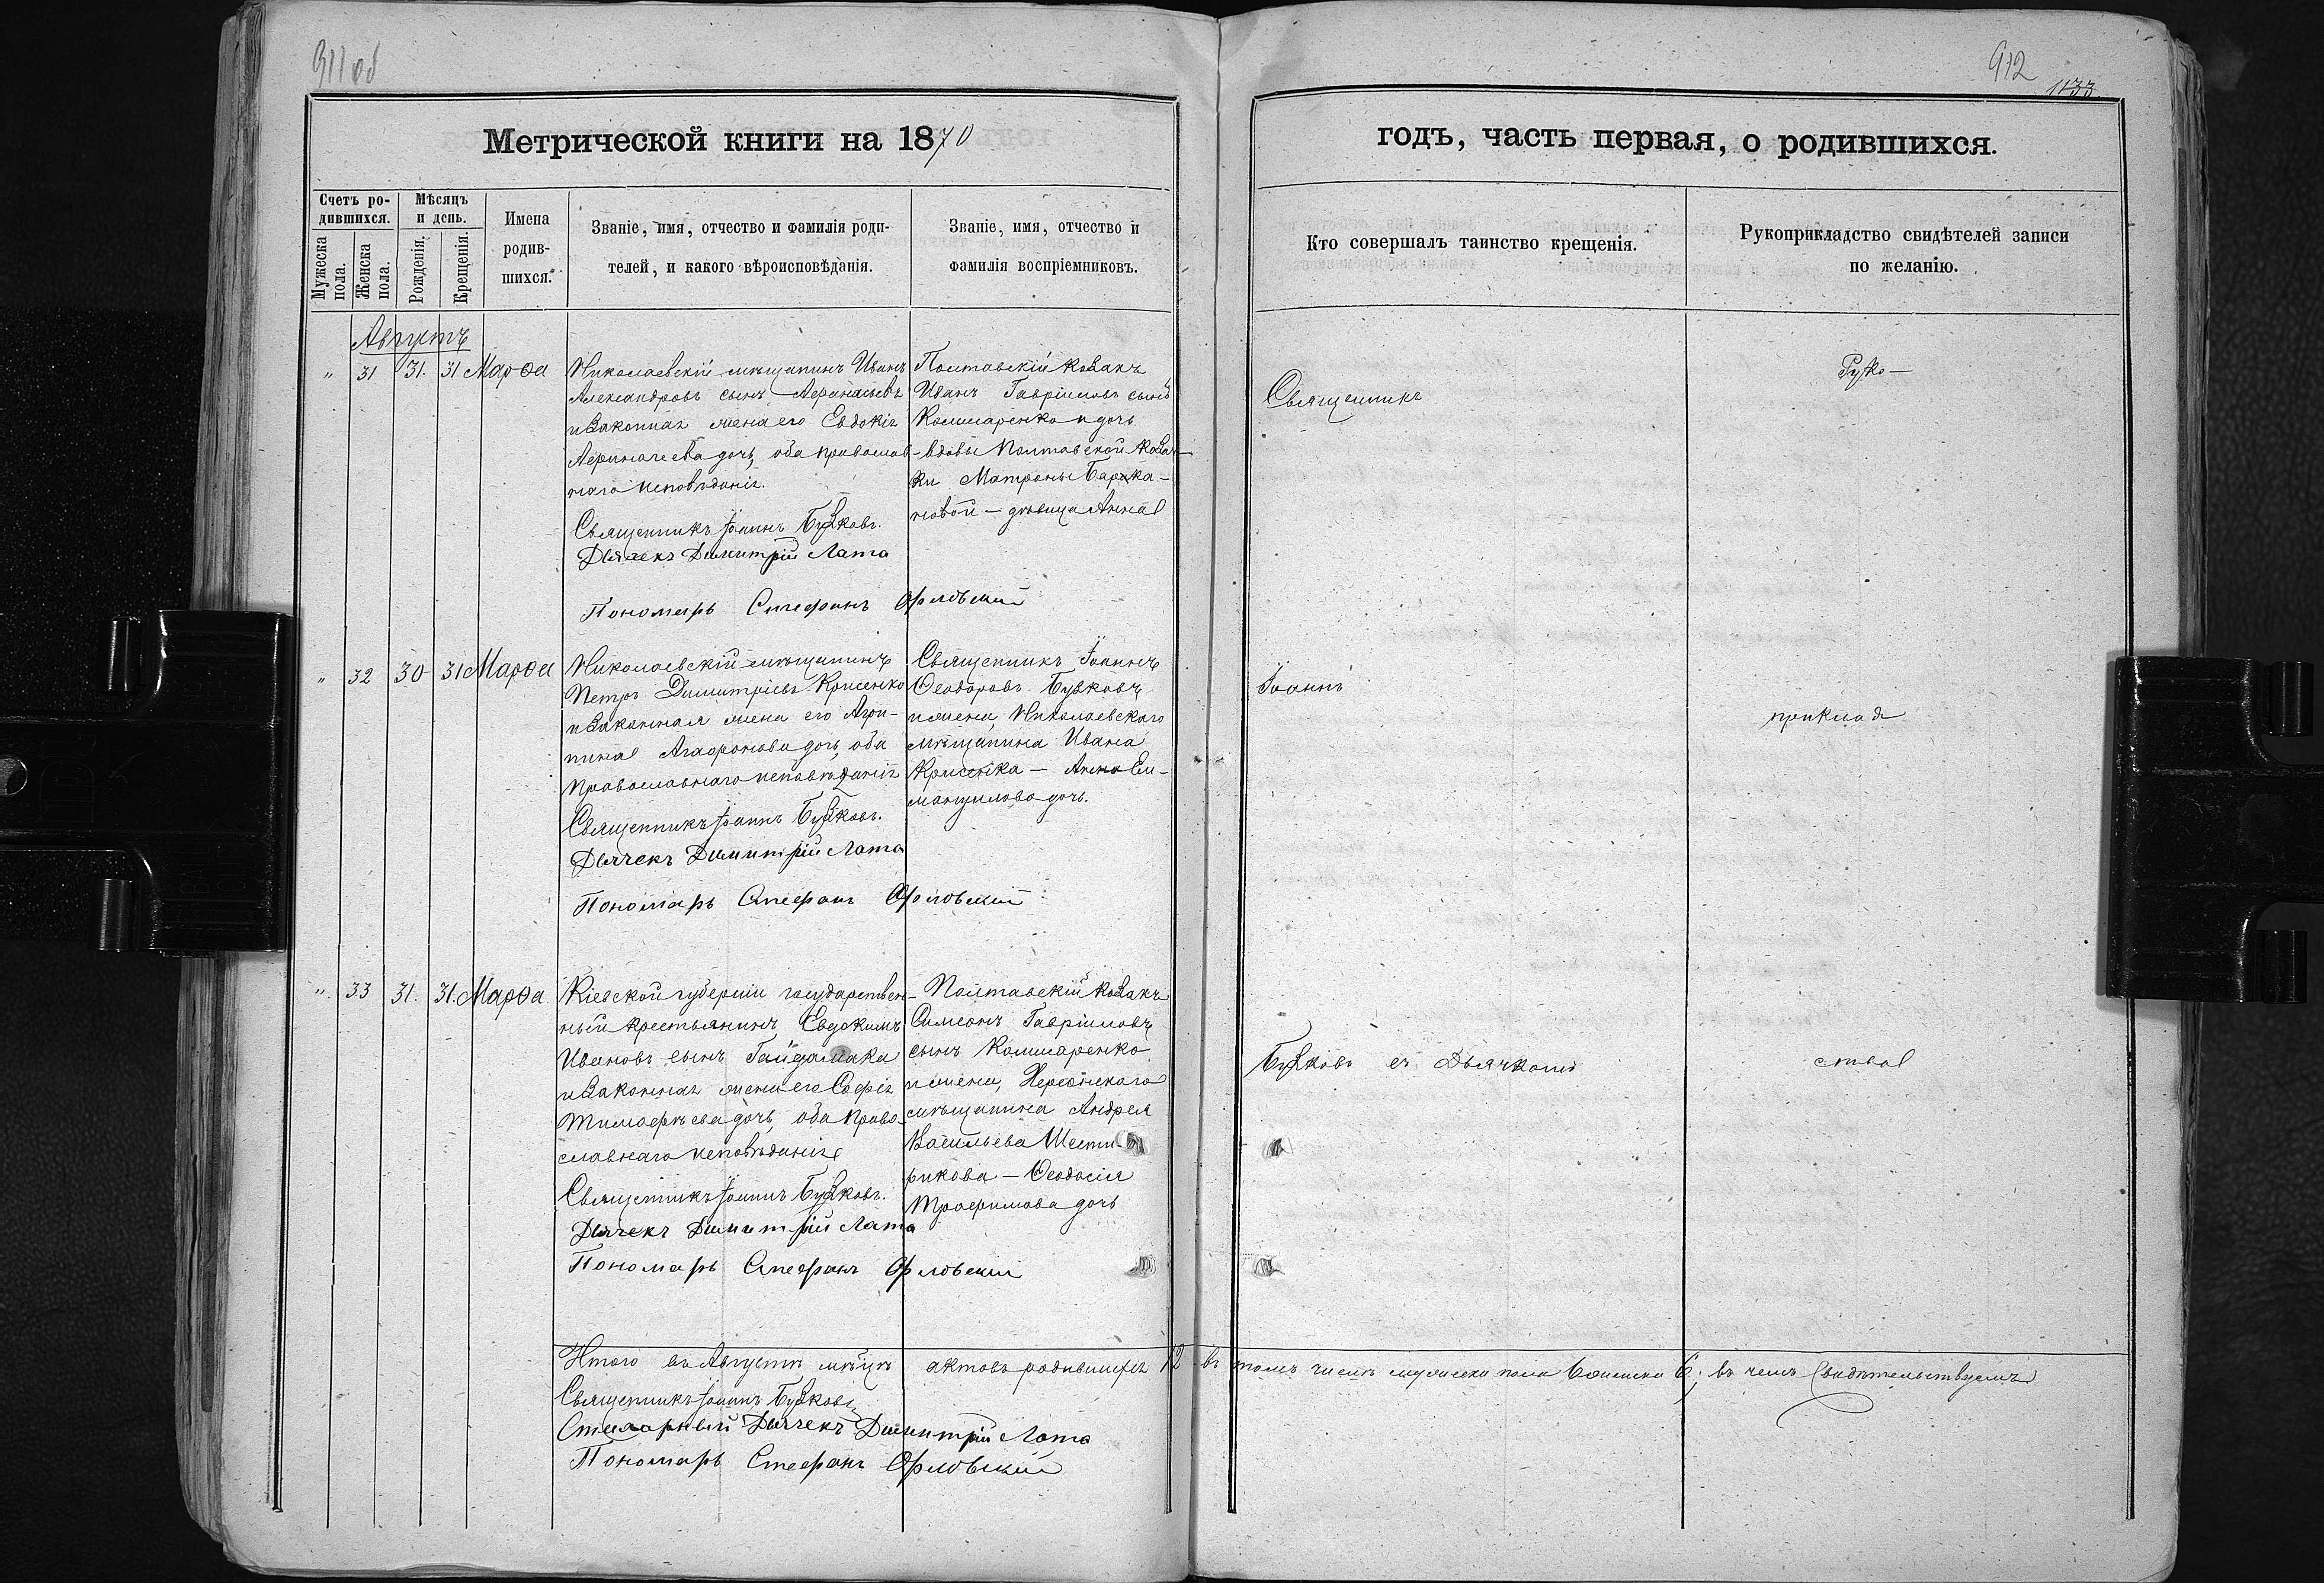 911 об
912
1133
Метрической книги на 1870
годъ, часть первая, о родившихся.
Счетъ ро-
дившихся.
Мужеска пола.
Женска пола.
Мѣсяцъ
и день.
Рожденія.
Крещенія.
Имена
родив-
шихся.
Званіе, имя, отчество и фамилія роди-
телей, и какого вѣроисповѣданія.
Званіе, имя, отчество и
фамилія воспріемниковъ.
Кто совершалъ таинство крещенія.
Рукоприкладство свидѣтелей записи
по желанію.
Августъ
" 31 31. 31 Марѳа
Николаевскій мѣщанинъ Иванъ
Александровъ сынъ Аѳанасьевъ
и законная жена его Евдокія
дочь, оба православ-
наго исповѣданія.
Священникъ Іоаннъ Бузковъ.
Дьячекъ Димитрій Лата
Пономарь Стефанъ Орловскій
Полтавскій козакъ
Иванъ Гавріиловъ сынъ
Кошмаренко и дочь
вдовы Полтавской коза-
ки Матроны Барака-
новой – дѣвица Анна
Священникъ
Руко–
" 32 30 31 Марѳа
Николаевскій мѣщанинъ
Петръ Димитріевъ Крисенко
и законная жена его Агри-
пина Агафонова дочь, оба
православнаго исповѣданія
Священникъ Іоаннъ Бузковъ.
Дьячекъ Димитрій Лата
Пономарь Стефанъ Орловскій
Священникъ Іоаннъ
Ѳеодоровъ Бузковъ
и жена, Николаевскаго
мѣщанина Ивана
Крисенка – Анна Ем-
мануилова дочь.
Іоаннъ
приклад
" 33 31. 31. Марѳа
Кіевской губерніи государствен-
ный крестьянинъ Евдокимъ
Ивановъ сынъ Гайдамака
и законная жена его Софія
Тимофѣева дочь, оба право-
славнаго исповѣданія
Священникъ Іоаннъ Бузковъ.
Дьячекъ Димитрій Лата
Пономарь Стефанъ Орловскій
Полтавскій козакъ
Симеонъ Гавріиловъ
сынъ Кошмаренко
и жена, Херсонскаго
мѣщанина Андрея
Васильева Шести-
рикова – Ѳеодосія
Трофимова дочь
Бузковъ съ Дьячкомъ
ства
Итого въ Августѣ мѣсяцѣ актовъ родившихся 12 въ томъ числѣ мужеска пола 6 женска 6; въ чемъ свидѣтельствуемъ
Священникъ Іоаннъ Бузковъ
Дьячекъ Димитрій Лата
Пономарь Стефанъ Орловскій